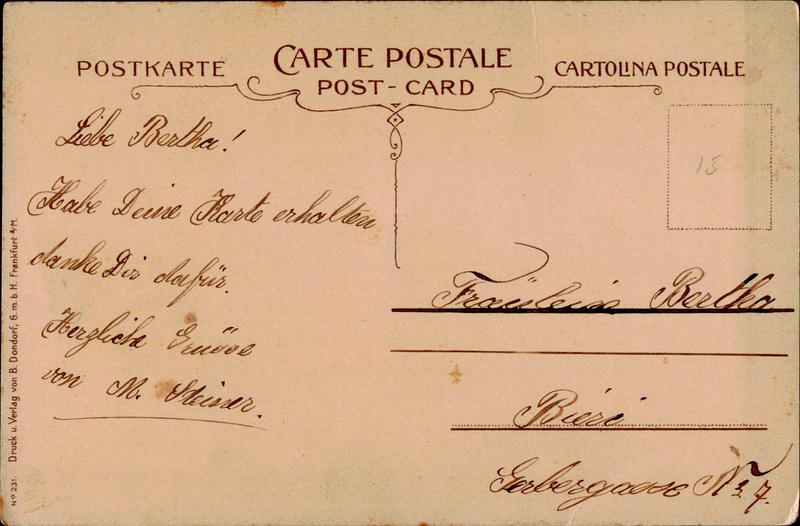 POSTKARTE
CARTE POSTALE
POST-CARD
CARTOLINA POSTALE
Liebe Bertha!
Habe Deine Karte erhalten
danke Dir dafür.
Herzliche Grüsse
von M. Steiner.
15
Fräulein Bertha
Bieri
Gerbergasse No 7.
No 231. Druck u. Verlag von B. Dondorf, G.m.b.H. Frankfurt a/M.